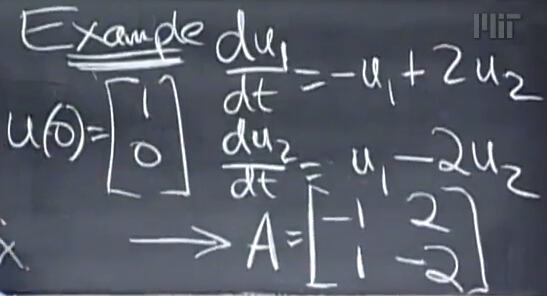 Example du₁/dt = -u₁ + 2u₂
u(0) = [1 0]
du₂/dt = u₁ - 2u₂
x.
→ A = [-1 2
1 -2]
MIT